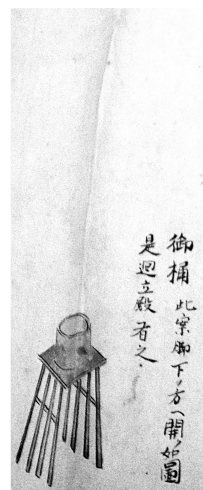 御桶 此案脚下ノ方ヘ開ク如圖
是廻立殿有之